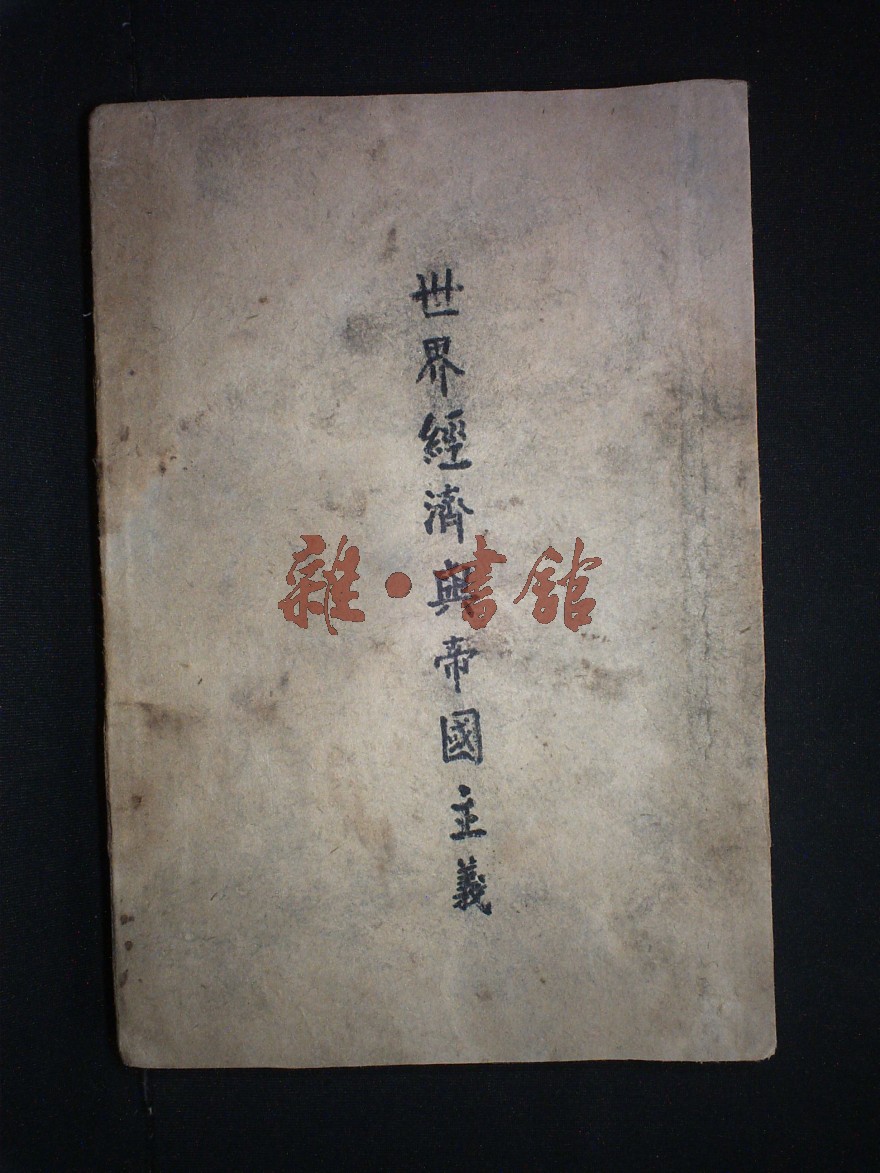 世界經濟與帝國主義
雜·書館